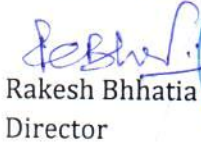 Rakesh Bhhatia
Director